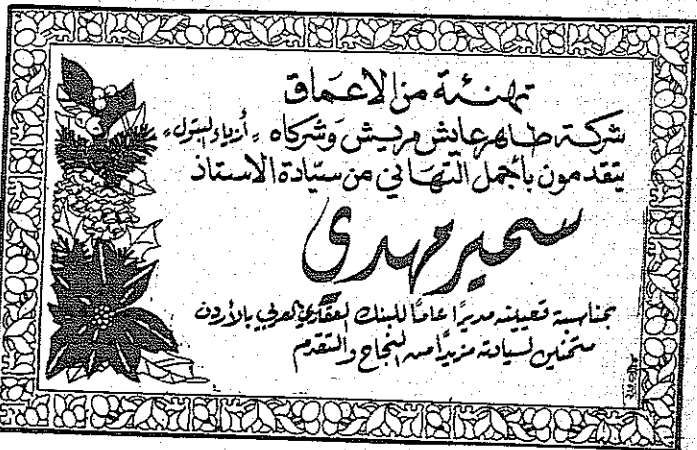 تهنئة من الاعماق
شركة طاهر عايش مريش وشركاه "أزياء البتول"
يتقدمون بأجمل التهاني من سيادة الاستاذ
سمير مهدي
بمناسبة تعيينه مديرًا عامًا للبنك العقاري العربي بالأردن
متمنين لسيادته مزيدًا من النجاح والتقدم